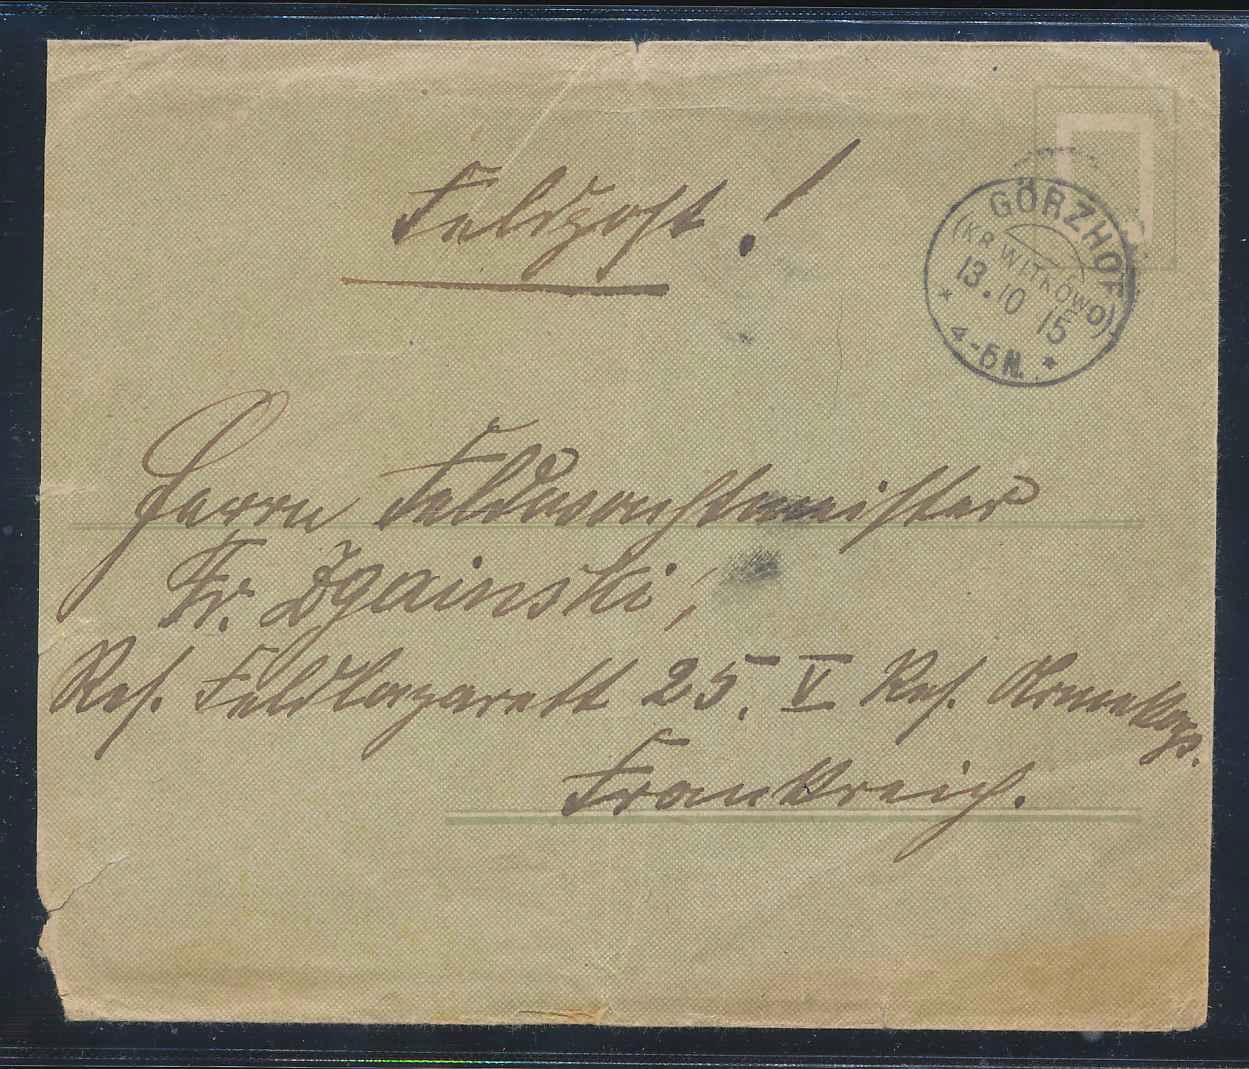 Feldpost!
GÖRZHOF
(KR. WITKOWO)
13.10 15
* 4-5N. *
Herrn Feldwachtmeister
Fr. Zgainski,
Res. Feldlazarett 25. V Res. Armeekorps.
Frankreich.